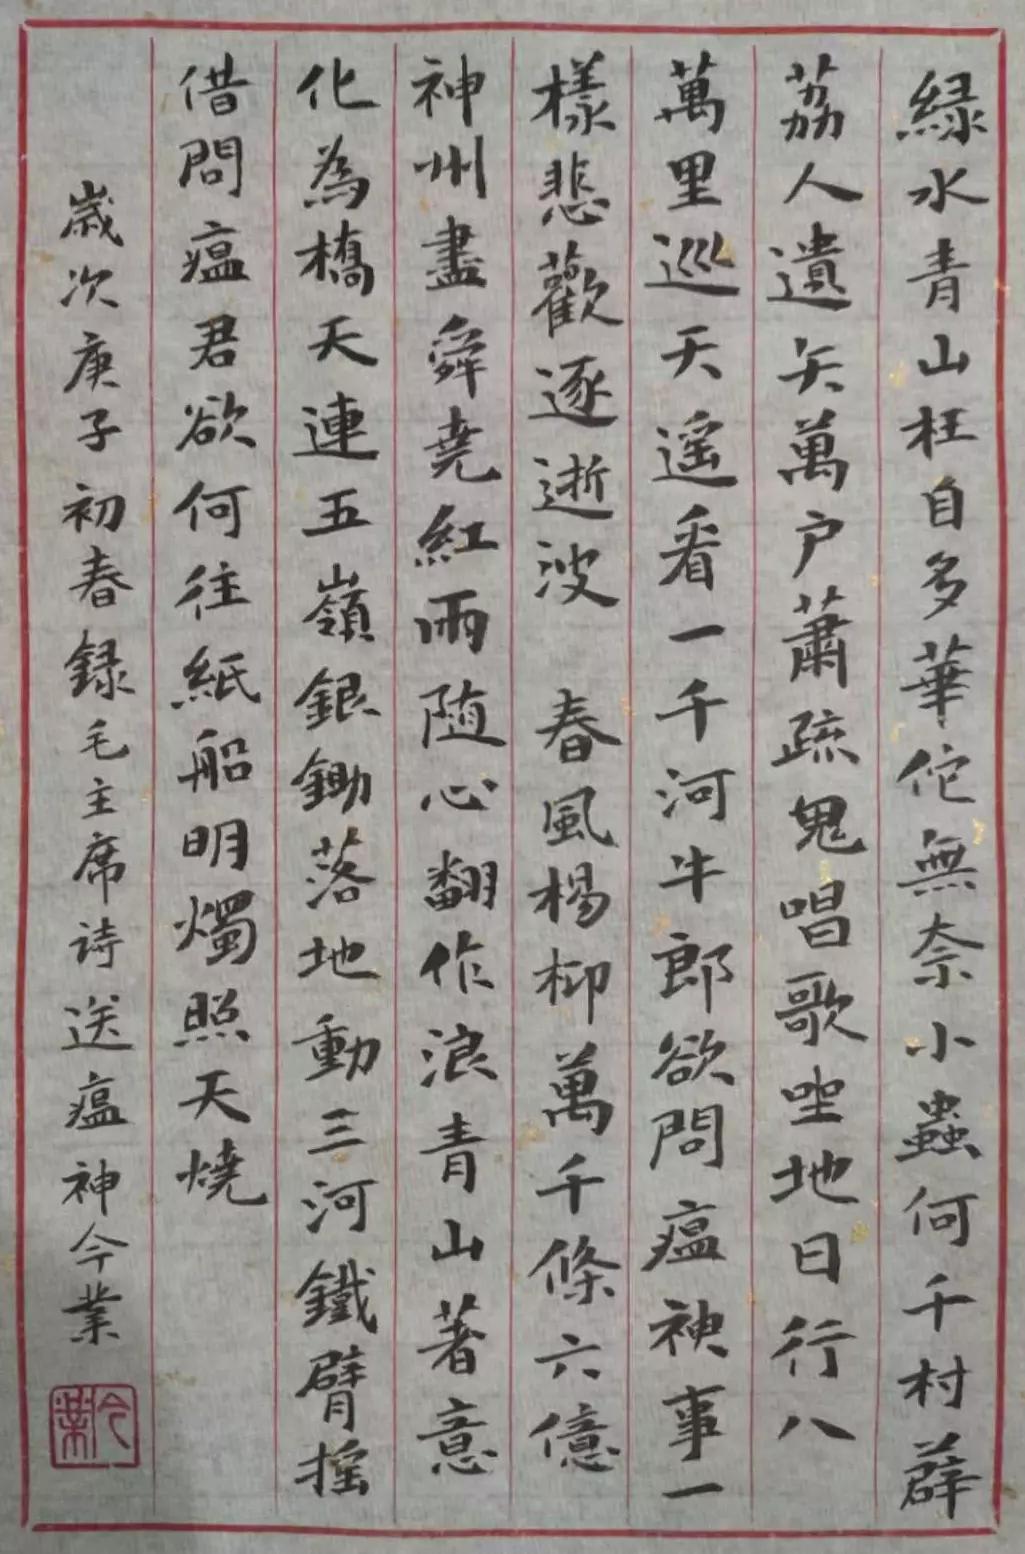 緑水青山枉自多華佗無奈小蟲何千村薜
荔人遺矢萬户蕭疏鬼唱歌坐地日行八
萬里巡天遥看一千河牛郎欲問瘟神事一
樣悲歡逐逝波 春風楊柳萬千條六億
神州盡舜堯紅雨随心翻作浪青山著意
化為橋天連五嶺銀鋤落地動三河鐵臂摇
借問瘟君欲何往紙船明燭照天燒
歲次庚子初春録毛主席诗送瘟神今業
今業